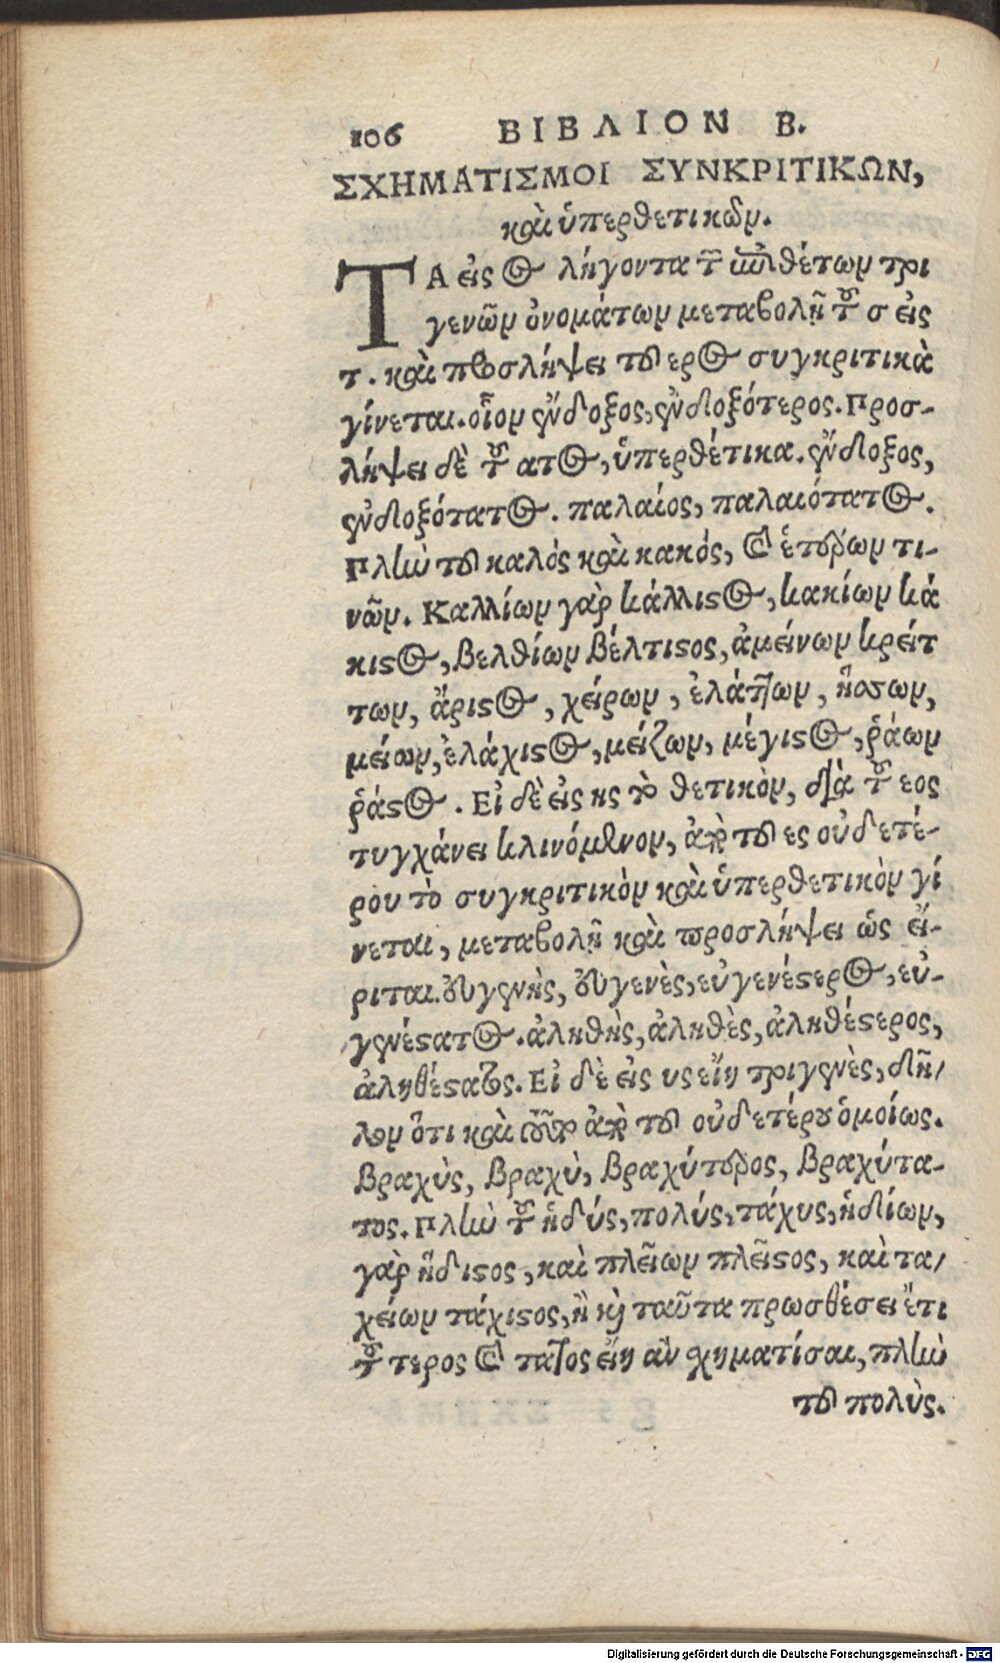 106 ΒΙΒΛΙΟΝ Β.
ΣΧΗΜΑΤΙΣΜΟΙ ΣΥΝΚΡΙΤΙΚΩΝ,
καὶ ὑπερθετικῶν.
ΤΑ εἰς ος λήγοντα τῶν ἐπιθέτων τρι
γενῶν ὀνομάτων μεταβολῇ τοῦ σ εἰς
τ. καὶ προσλήψει τοῦ ερος συγκριτικὰ
γίνεται. οἷον ἔνδοξος, ἐνδοξότερος. Προσ-
λήψει δὲ τοῦ ατος, ὑπερθέτικα. ἔνδοξος,
ἐνδοξότατος. παλαίος, παλαιότατος.
Πλὴν τοῦ καλός καὶ κακός, καὶ ἑτέρων τι-
νῶν. Καλλίων γὰρ κάλλιστος, κακίων κά
κιστος, βελθίων βέλτιστος, ἀμείνων κρείτ
των, ἄριστος, χείρων, ἐλάττων, ἥσσων,
μείων, ἐλάχιστος, μείζων, μέγιστος, ῥάων
ῥάστος. Εἰ δὲ εἰς ης τὸ θετικὸν, διὰ τοῦ εος
τυγχάνει κλινόμενον, ἀπὸ τοῦ ες οὐδετέ-
ρου τὸ συγκριτικὸν καὶ ὑπερθετικὸν γί
νεται, μεταβολῇ καὶ προσλήψει ὡς εἴ-
ριται. ευγενὴς, ευγενὲς, εὐγενέστερος, εὐ-
γενέστατος. ἀληθὴς, ἀληθὲς, ἀληθέστερος,
ἀληθέστατος. Εἰ δὲ εἰς υς εἴη τριγενὲς, δῆ/
λον ὅτι καὶ οὗτο ἀπὸ τοῦ οὐδετέρου ὁμοίως.
Βραχὺς, βραχὺ, βραχύτερος, βραχύτα-
τος. Πλὴν τοῦ ἡδύς, πολύς, τάχυς, ἡδίων,
γὰρ ἥδιστος, καὶ πλεῖων πλεῖστος, καὶ τα/
χείων τάχιστος, ἢ καὶ ταῦτα πρωσθέσει ἔτι
τοῦ τερος καὶ τατος εἴη αν χηματίσαι, πλὴν
τοῦ πολὺς.
Digitalisierung gefördert durch die Deutsche Forschungsgemeinschaft - DFG